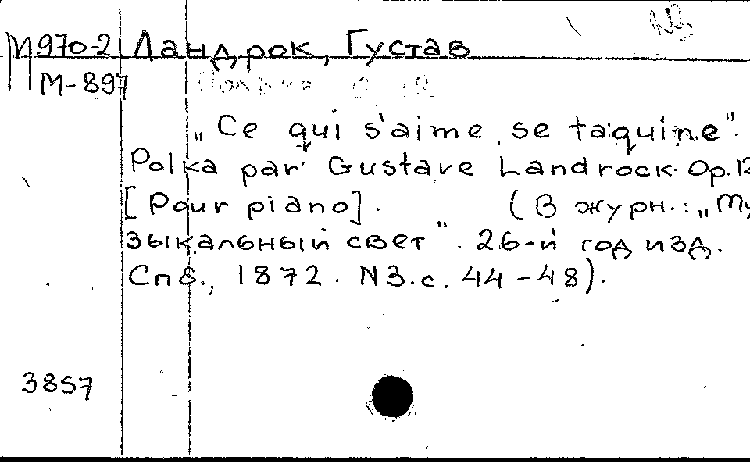 М970-2 Ландрок, Густав
М-897
„Ce qui s'aime, se taquine".
Polka par Gustave Landrock. Op.12
[Pour piano]. (В журн.: „Му
зыкальный свет". 26-й год изд.
Спб., 1872. N3. с. 44-48).
3857